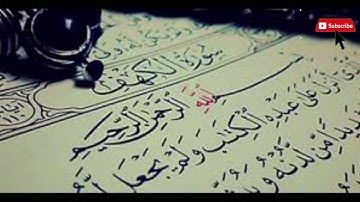 Subscribe
سُورَةُ الْكَهْفِ
بِسْمِ اللَّهِ الرَّحْمَنِ الرَّحِيمِ
أَنْزَلَ عَلَى عَبْدِهِ الْكِتَبَ وَلَمْ يَجْعَلْ
مِنْ لَدُنْهُ